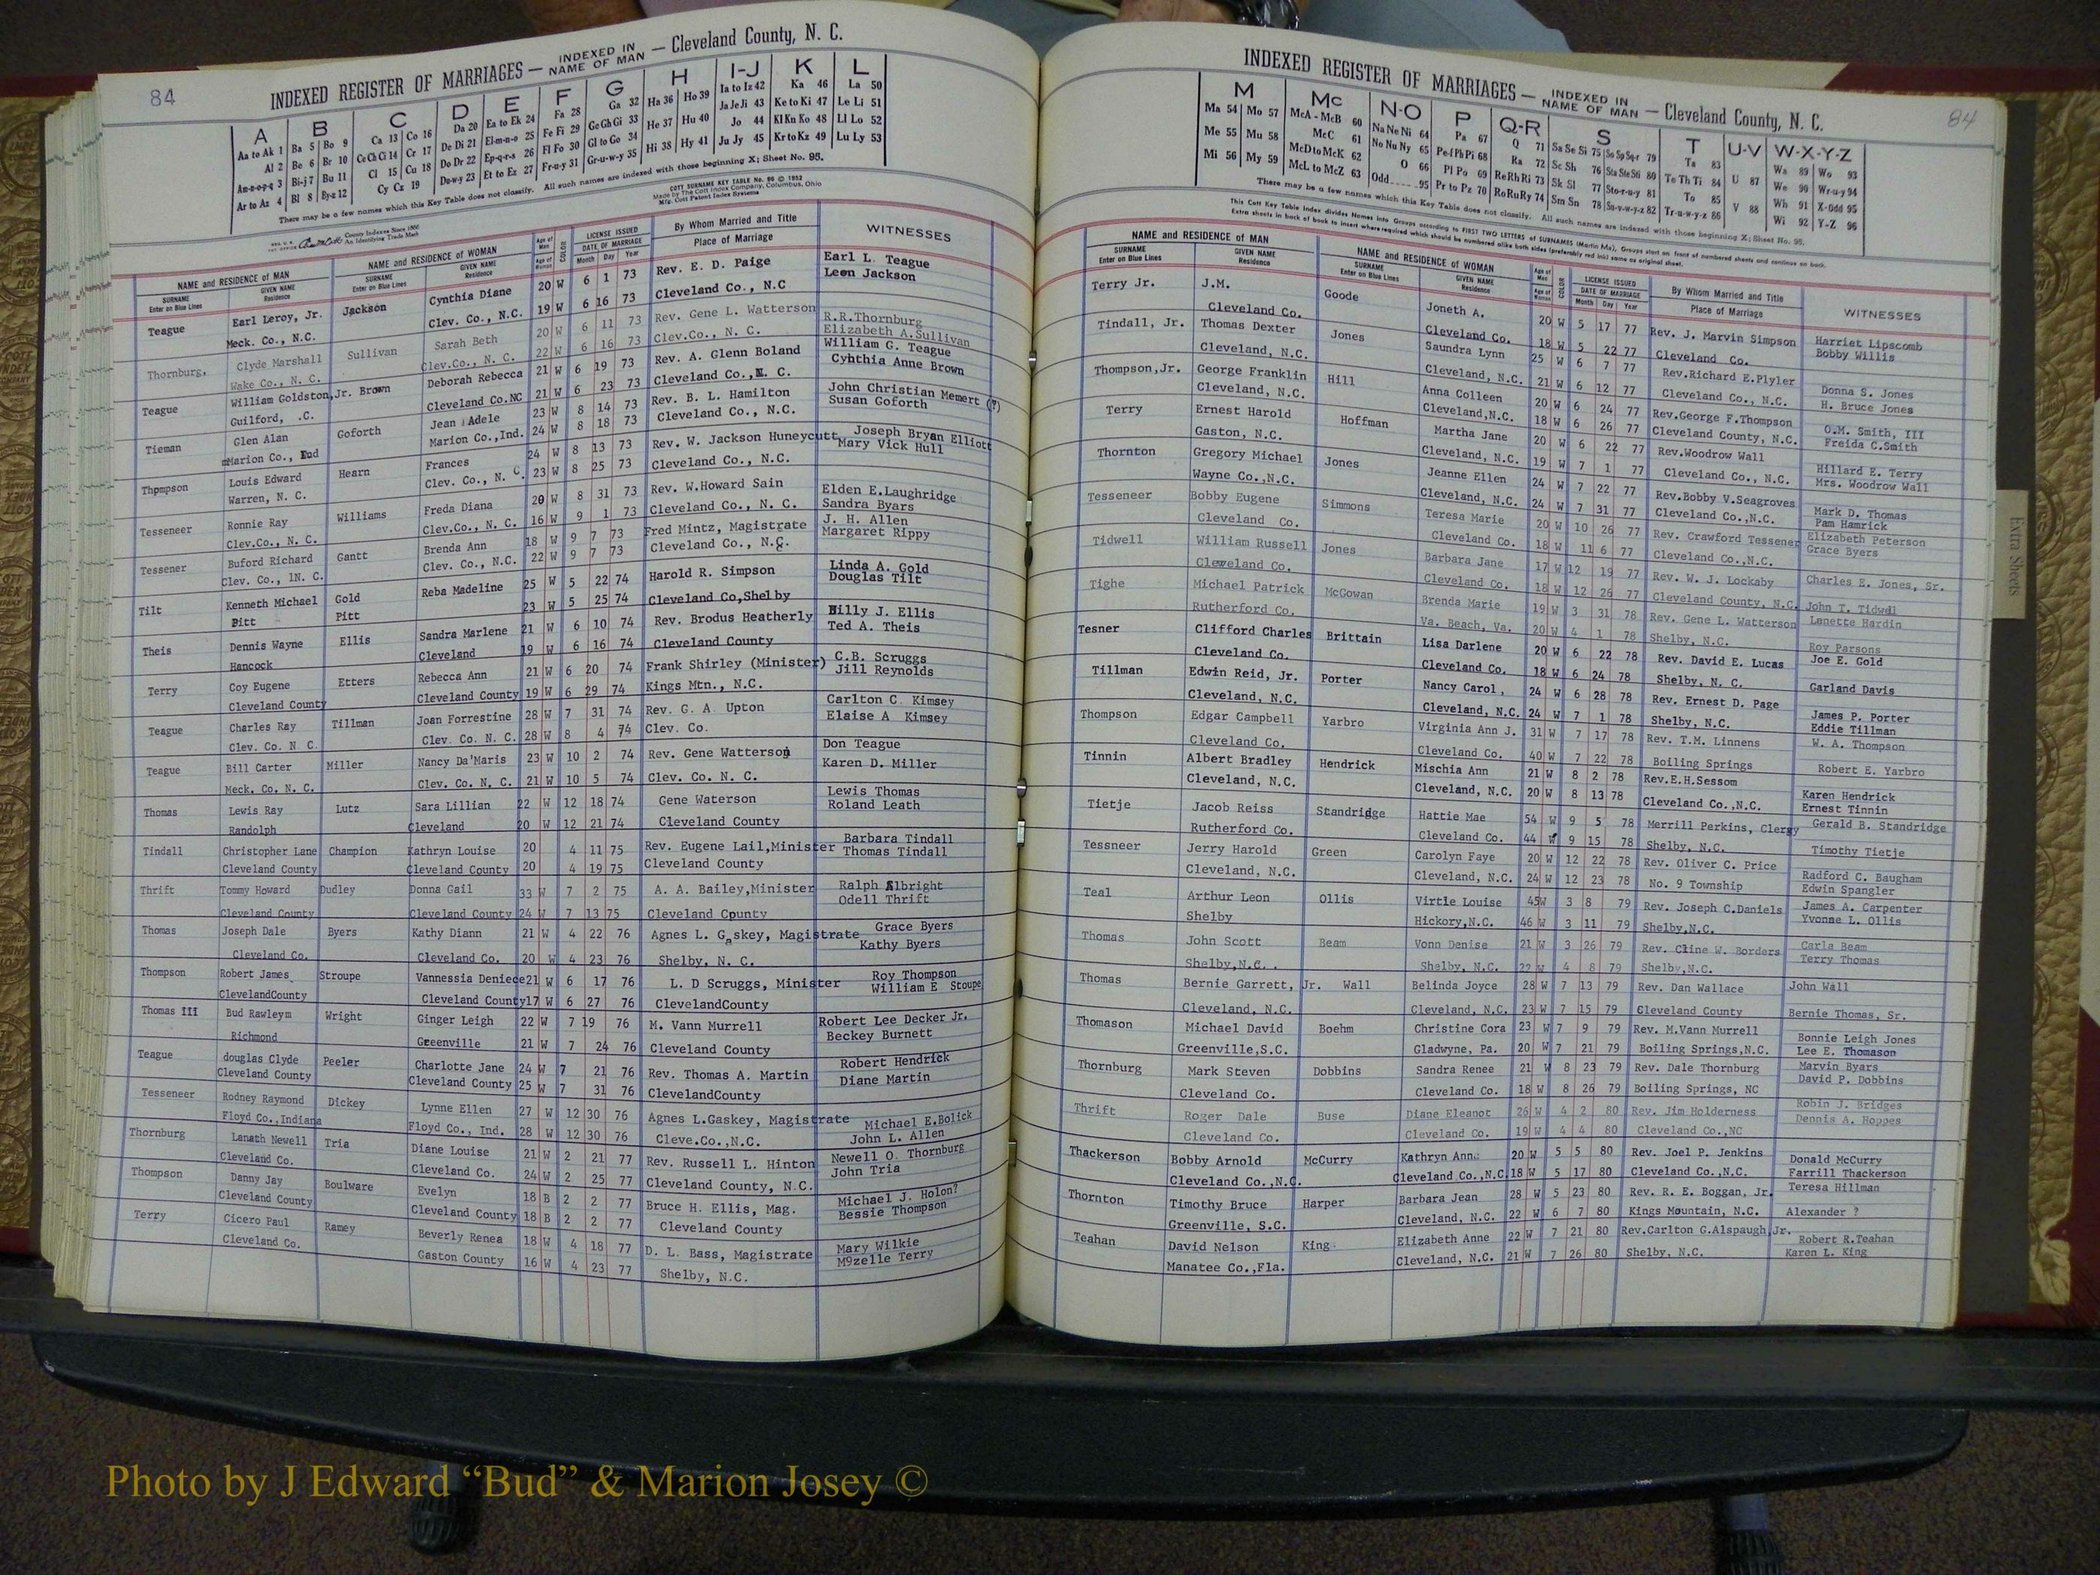 84
INDEXED REGISTER OF MARRIAGES — INDEXED IN NAME OF MAN — Cleveland County, N. C.
A B C D E F G H I-J K L
Aa to Ak 1 Ba 5 Bo 9 Ca 13 Co 16 Da 20 Ea to Ek 24 Fa 28 Ga 32 Ha 36 Ho 39 Ia to Iz 42 Ka 46 La 50
Al 2 Be 6 Br 10 Ce Ch Ci 14 Cr 17 De Di 21 El-m-n-o 25 Fe Fi 29 Ge Gh Gi 33 He 37 Hu 40 Ja Je Ji 43 Ke to Ki 47 Le Li 51
Am-n-o-p-q 3 Bi-j 7 Bu 11 Cl 15 Cu 18 Do Dr 22 Ep-q-r-s 26 Fl Fo 30 Gl to Go 34 Hi 38 Hy 41 Jo 44 Kl Kn Ko 48 Ll Lo 52
Ar to Az 4 Bl 8 By-z 12 Cy Cz 19 Du-w-y 23 Et to Ez 27 Fr-u-y 31 Gr-u-w-y 35 Ju Jy 45 Kr to Kz 49 Lu Ly 53
There may be a few names which this Key Table does not classify. All such names are indexed with those beginning X; Sheet No. 95.
COTT SURNAME KEY TABLE No. 86 © 1952
Made by The Cott Index Company, Columbus, Ohio
Mfg. Cott Patent Index Systems
County Indexes Since 1888
An Identifying Trade Mark
NAME and RESIDENCE of MAN NAME and RESIDENCE of WOMAN Age of Man Age of Woman COLOR LICENSE ISSUED DATE OF MARRIAGE By Whom Married and Title Place of Marriage WITNESSES
SURNAME Enter on Blue Lines GIVEN NAME Residence SURNAME Enter on Blue Lines GIVEN NAME Residence Month Day Year
Teague Earl Leroy, Jr. Jackson Cynthia Diane 20 W 6 1 73 Rev. E. D. Paige Earl L. Teague
Meck. Co., N.C. Clev. Co., N.C. 19 W 6 16 73 Cleveland Co., N.C Leon Jackson
Thornburg, Clyde Marshall Sullivan Sarah Beth 20 W 6 11 73 Rev. Gene L. Watterson R.R.Thornburg
Wake Co., N. C. Clev.Co., N. C. 22 W 6 16 73 Clev.Co., N. C. Elizabeth A.Sullivan
Teague William Goldston,Jr. Brown Deborah Rebecca 21 W 6 19 73 Rev. A. Glenn Boland William G. Teague
Guilford, .C. Cleveland Co.NC 21 W 6 23 73 Cleveland Co.,N. C. Cynthia Anne Brown
Tieman Glen Alan Goforth Jean Adele 23 W 8 14 73 Rev. B. L. Hamilton John Christian Memert (?)
Marion Co., Ind Marion Co.,Ind. 24 W 8 18 73 Cleveland Co., N.C. Susan Goforth
Thompson Louis Edward Hearn Frances 24 W 8 13 73 Rev. W. Jackson Huneycutt Joseph Bryan Elliott
Warren, N. C. Clev. Co., N. C. 23 W 8 25 73 Cleveland Co., N.C. Mary Vick Hull
Tesseneer Ronnie Ray Williams Freda Diana 20 W 8 31 73 Rev. W.Howard Sain Elden E.Laughridge
Clev.Co., N. C. Clev.Co., N. C. 16 W 9 1 73 Cleveland Co., N. C. Sandra Byars
Tessener Buford Richard Gantt Brenda Ann 18 W 9 7 73 Fred Mintz, Magistrate J. H. Allen
Clev. Co., lN. C. Clev. Co., N.C. 22 W 9 7 73 Cleveland Co., N.C. Margaret Rippy
Tilt Kenneth Michael Gold Reba Madeline 25 W 5 22 74 Harold R. Simpson Linda A. Gold
Pitt Pitt 23 W 5 25 74 Cleveland Co,Shelby Douglas Tilt
Theis Dennis Wayne Ellis Sandra Marlene 21 W 6 10 74 Rev. Brodus Heatherly Billy J. Ellis
Hancock Cleveland 19 W 6 16 74 Cleveland County Ted A. Theis
Terry Coy Eugene Etters Rebecca Ann 21 W 6 20 74 Frank Shirley (Minister) C.B. Scruggs
Cleveland County Cleveland County 19 W 6 29 74 Kings Mtn., N.C. Jill Reynolds
Teague Charles Ray Tillman Joan Forrestine 28 W 7 31 74 Rev. G. A. Upton Carlton C. Kimsey
Clev. Co. N C. Clev. Co. N. C. 28 W 8 4 74 Clev. Co. Elaise A Kimsey
Teague Bill Carter Miller Nancy Da'Maris 23 W 10 2 74 Rev. Gene Watterson Don Teague
Meck. Co. N. C. Clev. Co. N. C. 21 W 10 5 74 Clev. Co. N. C. Karen D. Miller
Thomas Lewis Ray Lutz Sara Lillian 22 W 12 18 74 Gene Waterson Lewis Thomas
Randolph Cleveland 20 W 12 21 74 Cleveland County Roland Leath
Tindall Christopher Lane Champion Kathryn Louise 20 4 11 75 Rev. Eugene Lail,Minister Barbara Tindall
Cleveland County Cleveland County 20 4 19 75 Cleveland County Thomas Tindall
Thrift Tommy Howard Dudley Donna Gail 33 W 7 2 75 A. A. Bailey,Minister Ralph Albright
Cleveland County Cleveland County 24 W 7 13 75 Cleveland County Odell Thrift
Thomas Joseph Dale Byers Kathy Diann 21 W 4 22 76 Agnes L. Gaskey, Magistrate Grace Byers
Cleveland Co. Cleveland Co. 20 W 4 23 76 Shelby, N. C. Kathy Byers
Thompson Robert James Stroupe Vannessia Deniece 21 W 6 17 76 L. D Scruggs, Minister Roy Thompson
ClevelandCounty Cleveland County 17 W 6 27 76 ClevelandCounty William E Stoupe
Thomas III Bud Rawleym Wright Ginger Leigh 22 W 7 19 76 M. Vann Murrell Robert Lee Decker Jr.
Richmond Greenville 21 W 7 24 76 Cleveland County Beckey Burnett
Teague douglas Clyde Peeler Charlotte Jane 24 W 7 21 76 Rev. Thomas A. Martin Robert Hendrick
Cleveland County Cleveland County 25 W 7 31 76 ClevelandCounty Diane Martin
Tesseneer Rodney Raymond Dickey Lynne Ellen 27 W 12 30 76 Agnes L.Gaskey, Magistrate Michael E.Bolick
Floyd Co.,Indiana Floyd Co., Ind. 28 W 12 30 76 Cleve.Co.,N.C. John L. Allen
Thornburg Lanath Newell Tria Diane Louise 21 W 2 21 77 Rev. Russell L. Hinton Newell O. Thornburg
Cleveland Co. Cleveland Co. 24 W 2 25 77 Cleveland County, N.C. John Tria
Thompson Danny Jay Boulware Evelyn 18 B 2 2 77 Bruce H. Ellis, Mag. Michael J. Holon?
Cleveland County Cleveland County 18 B 2 2 77 Cleveland County Bessie Thompson
Terry Cicero Paul Ramey Beverly Renea 18 W 4 18 77 D. L. Bass, Magistrate Mary Wilkie
Cleveland Co. Gaston County 16 W 4 23 77 Shelby, N.C. M9zelle Terry
84
INDEXED REGISTER OF MARRIAGES — INDEXED IN NAME OF MAN — Cleveland County, N. C.
M Mc N-O P Q-R S T U-V W-X-Y-Z
Ma 54 Mo 57 McA - McB 60 Na Ne Ni 64 Pa 67 Q 71 Sa Se Si 75 So Sp Sq-r 79 Ta 83 U 87 Wa 89 Wo 93
Me 55 Mu 58 McC 61 No Nu Ny 65 Pe-f Ph Pi 68 Ra 72 Sc Sh 76 Sta Ste Sti 80 Te Th Ti 84 V 88 We 90 Wr-u-y 94
Mi 56 My 59 McD to McK 62 O 66 Pl Po 69 Re Rh Ri 73 Sk Sl 77 Sto-r-u-y 81 To 85 Wh 91 X-Odd 95
McL to McZ 63 Odd 95 Pr to Pz 70 Ro Ru Ry 74 Sm Sn 78 Su-v-w-y-z 82 Tr-u-w-y-z 86 Wi 92 Y-Z 96
There may be a few names which this Key Table does not classify. All such names are indexed with those beginning X; Sheet No. 95.
This Cott Key Table Index divides Names into Groups according to FIRST TWO LETTERS of SURNAMES (Martin Ma), Groups start on front of numbered sheets and continue on back.
Extra sheets in back of book to insert where required which should be numbered alike both sides (preferably red ink) same as original sheet.
NAME and RESIDENCE of MAN NAME and RESIDENCE of WOMAN Age of Man Age of Woman COLOR LICENSE ISSUED DATE OF MARRIAGE By Whom Married and Title Place of Marriage WITNESSES
SURNAME Enter on Blue Lines GIVEN NAME Residence SURNAME Enter on Blue Lines GIVEN NAME Residence Month Day Year
Terry Jr. J.M. Goode Joneth A. 20 W 5 17 77 Rev. J. Marvin Simpson Harriet Lipscomb
Cleveland Co. Cleveland Co. 18 W 5 22 77 Cleveland Co. Bobby Willis
Tindall, Jr. Thomas Dexter Jones Saundra Lynn 25 W 6 7 77 Rev.Richard E.Plyler Donna S. Jones
Cleveland, N.C. Cleveland, N.C. 21 W 6 12 77 Cleveland Co., N.C. H. Bruce Jones
Thompson,Jr. George Franklin Hill Anna Colleen 20 W 6 24 77 Rev.George F.Thompson O.M. Smith, III
Cleveland, N.C. Cleveland,N.C. 18 W 6 26 77 Cleveland County, N.C. Freida C.Smith
Terry Ernest Harold Hoffman Martha Jane 20 W 6 22 77 Rev.Woodrow Wall Hillard E. Terry
Gaston, N.C. Cleveland, N.C. 19 W 7 1 77 Cleveland Co., N.C. Mrs. Woodrow Wall
Thornton Gregory Michael Jones Jeanne Ellen 24 W 7 22 77 Rev.Bobby V.Seagroves Mark D. Thomas
Wayne Co.,N.C. Cleveland, N.C. 24 W 7 31 77 Cleveland Co.,N.C. Pam Hamrick
Tesseneer Bobby Eugene Simmons Teresa Marie 20 W 10 26 77 Rev. Crawford Tessener Elizabeth Peterson
Cleveland Co. Cleveland Co. 18 W 11 6 77 Cleveland Co.,N.C. Grace Byers
Tidwell William Russell Jones Barbara Jane 17 W 12 19 77 Rev. W. J. Lockaby Charles E. Jones, Sr.
Cleveland Co. Cleveland Co. 18 W 12 26 77 Cleveland County, N.C. John T. Tidwell
Tighe Michael Patrick McGowan Brenda Marie 19 W 3 31 78 Rev. Gene L. Watterson Lanette Hardin
Rutherford Co. Va. Beach, Va. 20 W 4 1 78 Shelby, N.C. Roy Parsons
Tesner Clifford Charles Brittain Lisa Darlene 20 W 6 22 78 Rev. David E. Lucas Joe E. Gold
Cleveland Co. Cleveland Co. 18 W 6 24 78 Shelby, N. C. Garland Davis
Tillman Edwin Reid, Jr. Porter Nancy Carol, 24 W 6 28 78 Rev. Ernest D. Page James P. Porter
Cleveland, N.C. Cleveland, N.C. 24 W 7 1 78 Shelby, N.C. Eddie Tillman
Thompson Edgar Campbell Yarbro Virginia Ann J. 31 W 7 17 78 Rev. T.M. Linnens W. A. Thompson
Cleveland Co. Cleveland Co. 40 W 7 22 78 Boiling Springs Robert E. Yarbro
Tinnin Albert Bradley Hendrick Mischia Ann 21 W 8 2 78 Rev.E.H.Sessom Karen Hendrick
Cleveland, N.C. Cleveland, N.C. 20 W 8 13 78 Cleveland Co.,N.C. Ernest Tinnin
Tietje Jacob Reiss Standridge Hattie Mae 54 W 9 5 78 Merrill Perkins, Clergy Gerald B. Standridge
Rutherford Co. Cleveland Co. 44 W 9 15 78 Shelby, N.C. Timothy Tietje
Tessneer Jerry Harold Green Carolyn Faye 20 W 12 22 78 Rev. Oliver C. Price Radford C. Baugham
Cleveland, N.C. Cleveland, N.C. 24 W 12 23 78 No. 9 Township Edwin Spangler
Teal Arthur Leon Ollis Virtle Louise 45W 3 8 79 Rev. Joseph C.Daniels James A. Carpenter
Shelby Hickory,N.C. 46 W 3 11 79 Shelby,N.C. Yvonne L. Ollis
Thomas John Scott Beam Vonn Denise 21 W 3 26 79 Rev. Cline W. Borders Carla Beam
Shelby,N.C. . Shelby, N.C. 22 W 4 8 79 Shelby,N.C. Terry Thomas
Thomas Bernie Garrett, Jr. Wall Belinda Joyce 28 W 7 13 79 Rev. Dan Wallace John Wall
Cleveland, N.C. Cleveland, N.C. 23 W 7 15 79 Cleveland County Bernie Thomas, Sr.
Thomason Michael David Boehm Christine Cora 23 W 7 9 79 Rev. M.Vann Murrell Bonnie Leigh Jones
Greenville,S.C. Gladwyne, Pa. 20 W 7 21 79 Boiling Springs,N.C. Lee E. Thomason
Thornburg Mark Steven Dobbins Sandra Renee 21 W 8 23 79 Rev. Dale Thornburg Marvin Byars
Cleveland Co. Cleveland Co. 18 W 8 26 79 Boiling Springs, NC David P. Dobbins
Thrift Roger Dale Buse Diane Eleanot 26 W 4 2 80 Rev. Jim Holderness Robin J. Bridges
Cleveland Co. Cleveland Co. 19 W 4 4 80 Cleveland Co.,NC Dennis A. Hoppes
Thackerson Bobby Arnold McCurry Kathryn Ann. 20 W 5 5 80 Rev. Joel P. Jenkins Donald McCurry
Cleveland Co.,N.C. Cleveland Co.,N.C. 18 W 5 17 80 Cleveland Co.,N.C. Farrill Thackerson
Thornton Timothy Bruce Harper Barbara Jean 28 W 5 23 80 Rev. R. E. Boggan, Jr. Teresa Hillman
Greenville, S.C. Cleveland, N.C. 22 W 6 7 80 Kings Mountain, N.C. Alexander ?
Teahan David Nelson King Elizabeth Anne 22 W 7 21 80 Rev.Carlton G.Alspaugh,Jr. Robert R.Teahan
Manatee Co.,Fla. Cleveland, N.C. 21 W 7 26 80 Shelby, N.C. Karen L. King
Extra Sheets
Photo by J Edward “Bud” & Marion Josey ©